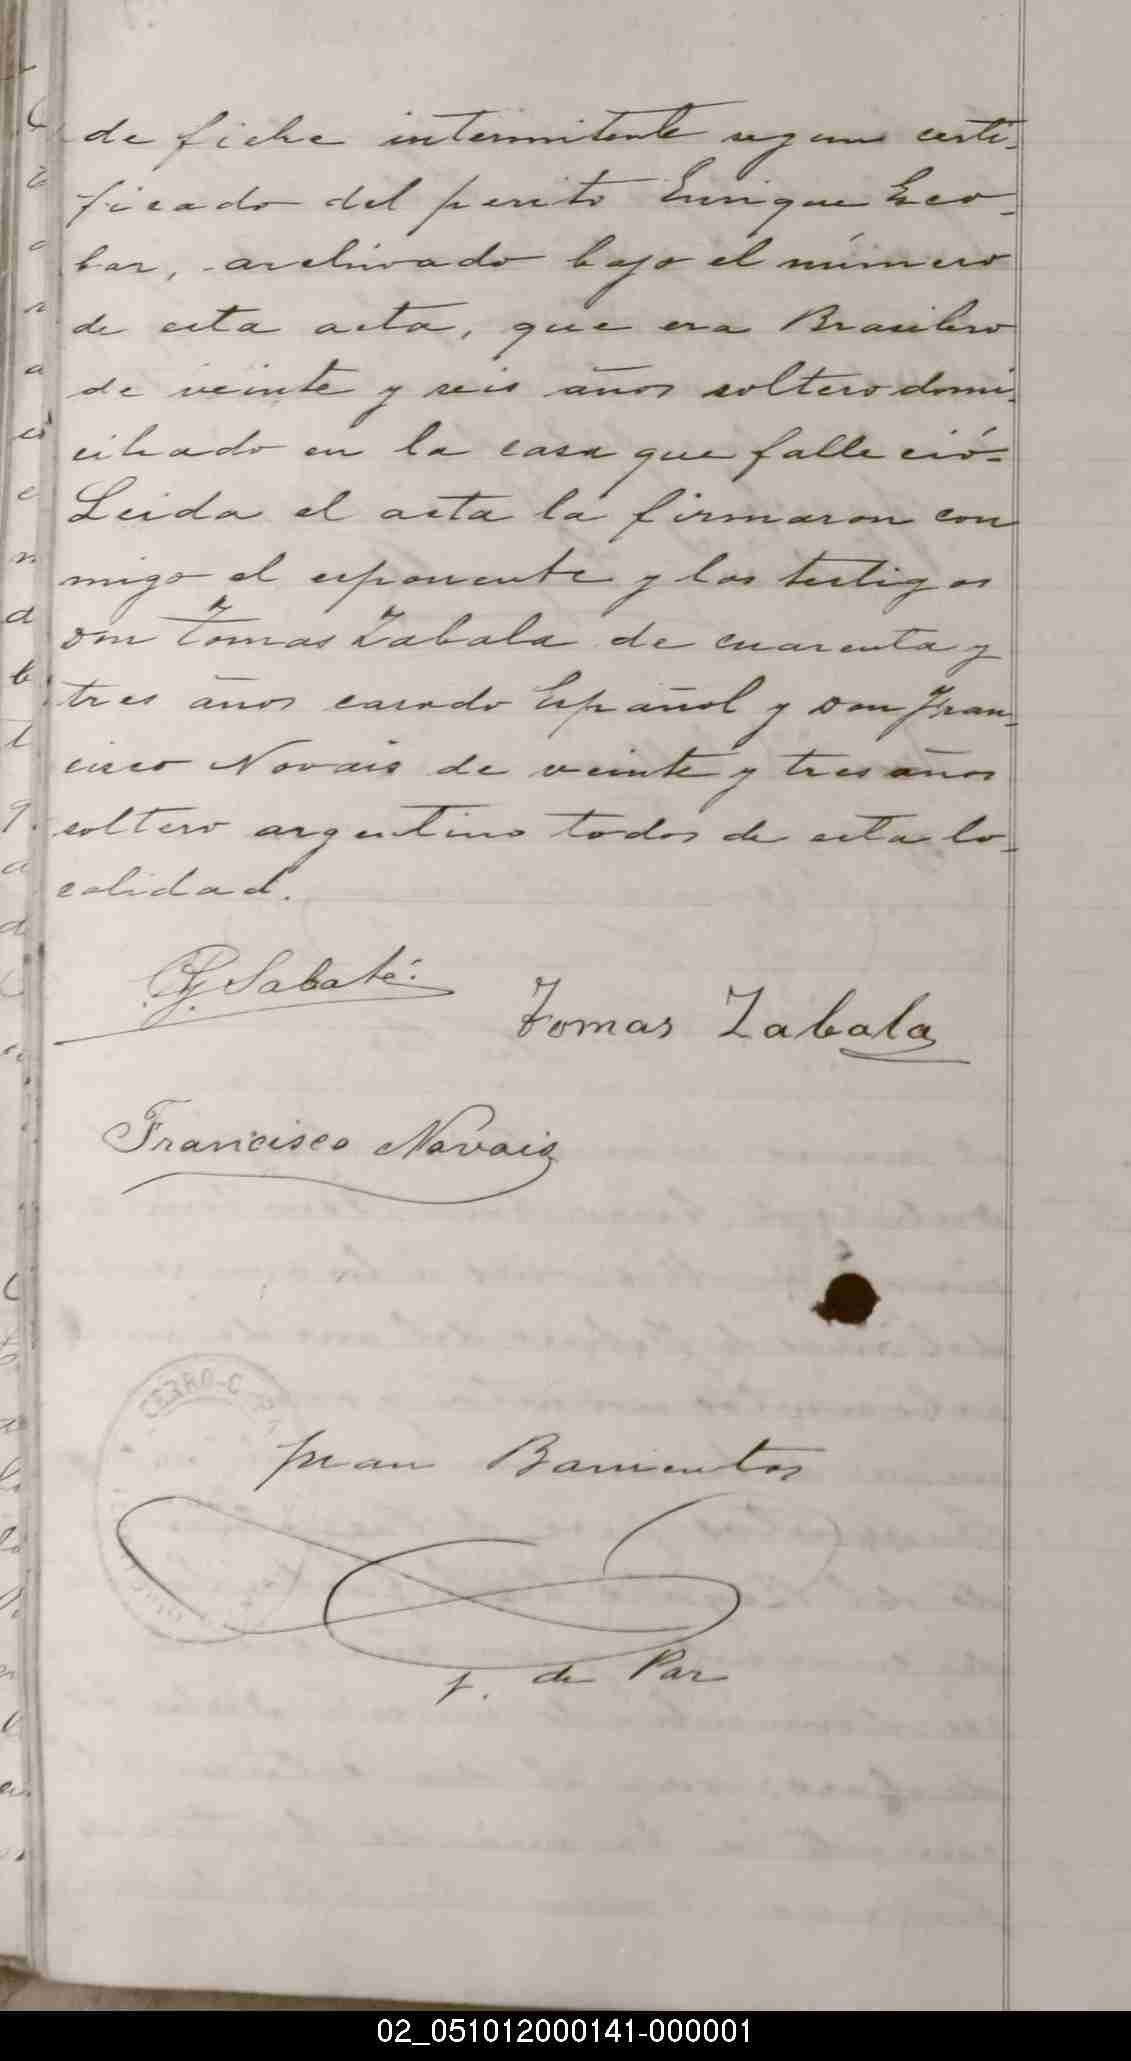 de fiebre intermitente segun certi-
ficado del perito Enrique Esco-
bar, archivado bajo el número
de esta acta, que era Brasilero
de veinte y seis años soltero domi-
ciliado en la casa que falleció-
Leida el acta la firmaron con
migo el esponente y los testigos
Don Tomas Zabala de cuarenta y
tres años casado Español y Don Fran-
cisco Novais de veinte y tres años
soltero argentino todos de esta lo-
calidad.
Sabaté.
Tomas Zabala
Francisco Novais
CERRO-C
Juan Barrientos
J. de Paz
02_051012000141-000001